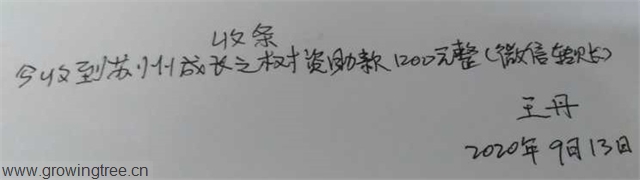 收条
今收到苏州成长之树资助款1200元整(微信转账)
王丹
2020年9月13日
www.growingtree.cn